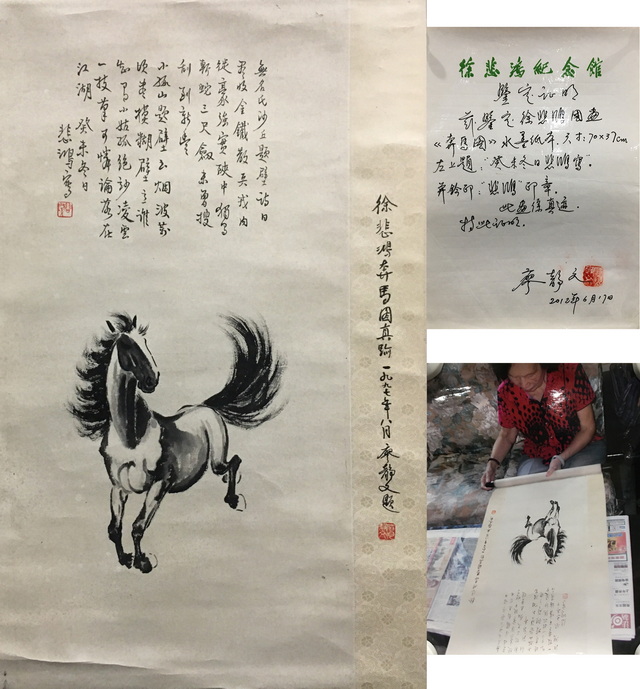 無名氏沙丘題壁詩曰
收金鐵散英戎内
從豪強實中獨有
斬蛇三尺劍未曾搜
刮到新豐
小孤山題壁云烟波萬
頃盡模糊壁立誰
知有小姑孤絕凌雲
一枝草可憐論落在
江湖 癸未冬日
悲鴻寫
徐悲鴻奔馬圖真跡 一九九七年八月 廖靜文題
徐悲鸿纪念馆
鉴定证明
兹鉴定徐悲鸿国画
《奔马图》水墨纸本、尺寸:70×37cm
左上题:"癸未冬日悲鸿写"
并钤印:"悲鸿"印章.
此画系真迹.
特此证明.
廖静文
2012年6月17日